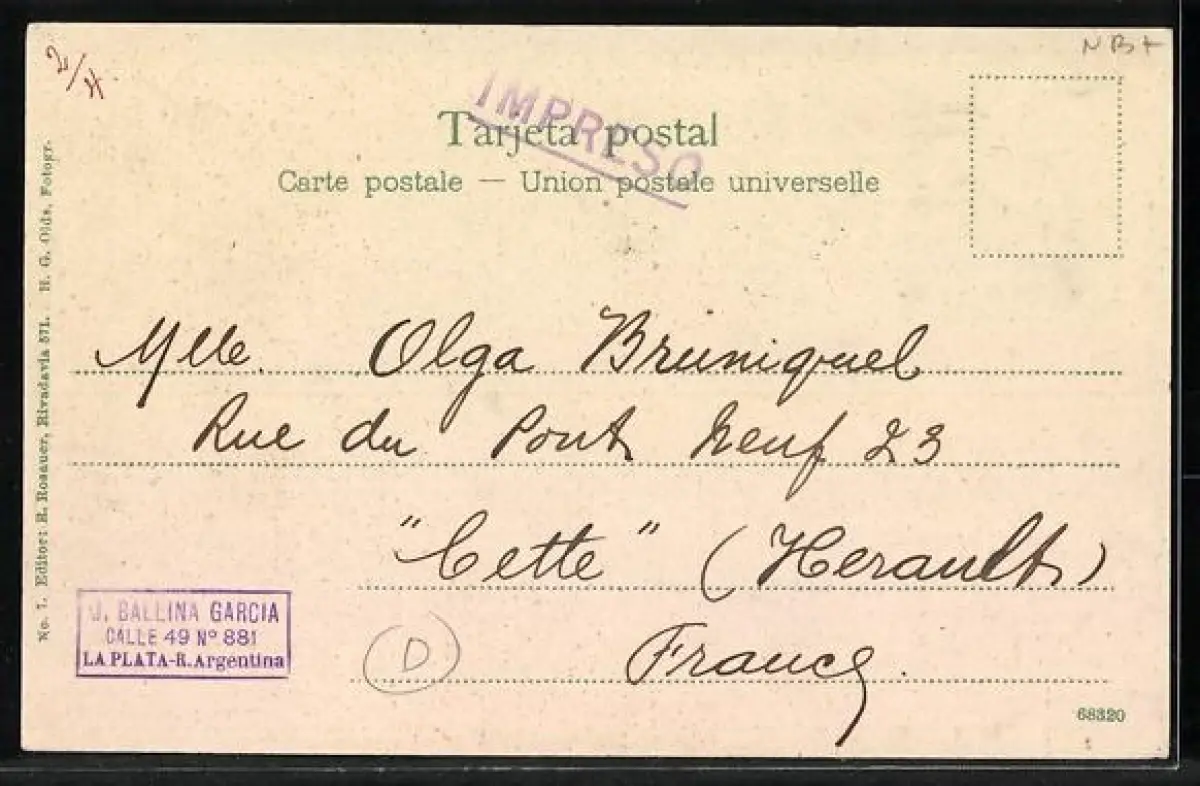 2/4
NB+
IMPRESO
Tarjeta postal
Carte postale — Union postale universelle
No. 7. Editor: R. Rosauer, Rivadavia 571. H. G. Olds, Fotogr.
Mlle. Olga Bruniquel
Rue du Pont Neuf 23
"Cette" (Herault)
France.
J. BALLINA GARCIA
CALLE 49 Nº 881
LA PLATA-R. Argentina
D
68320